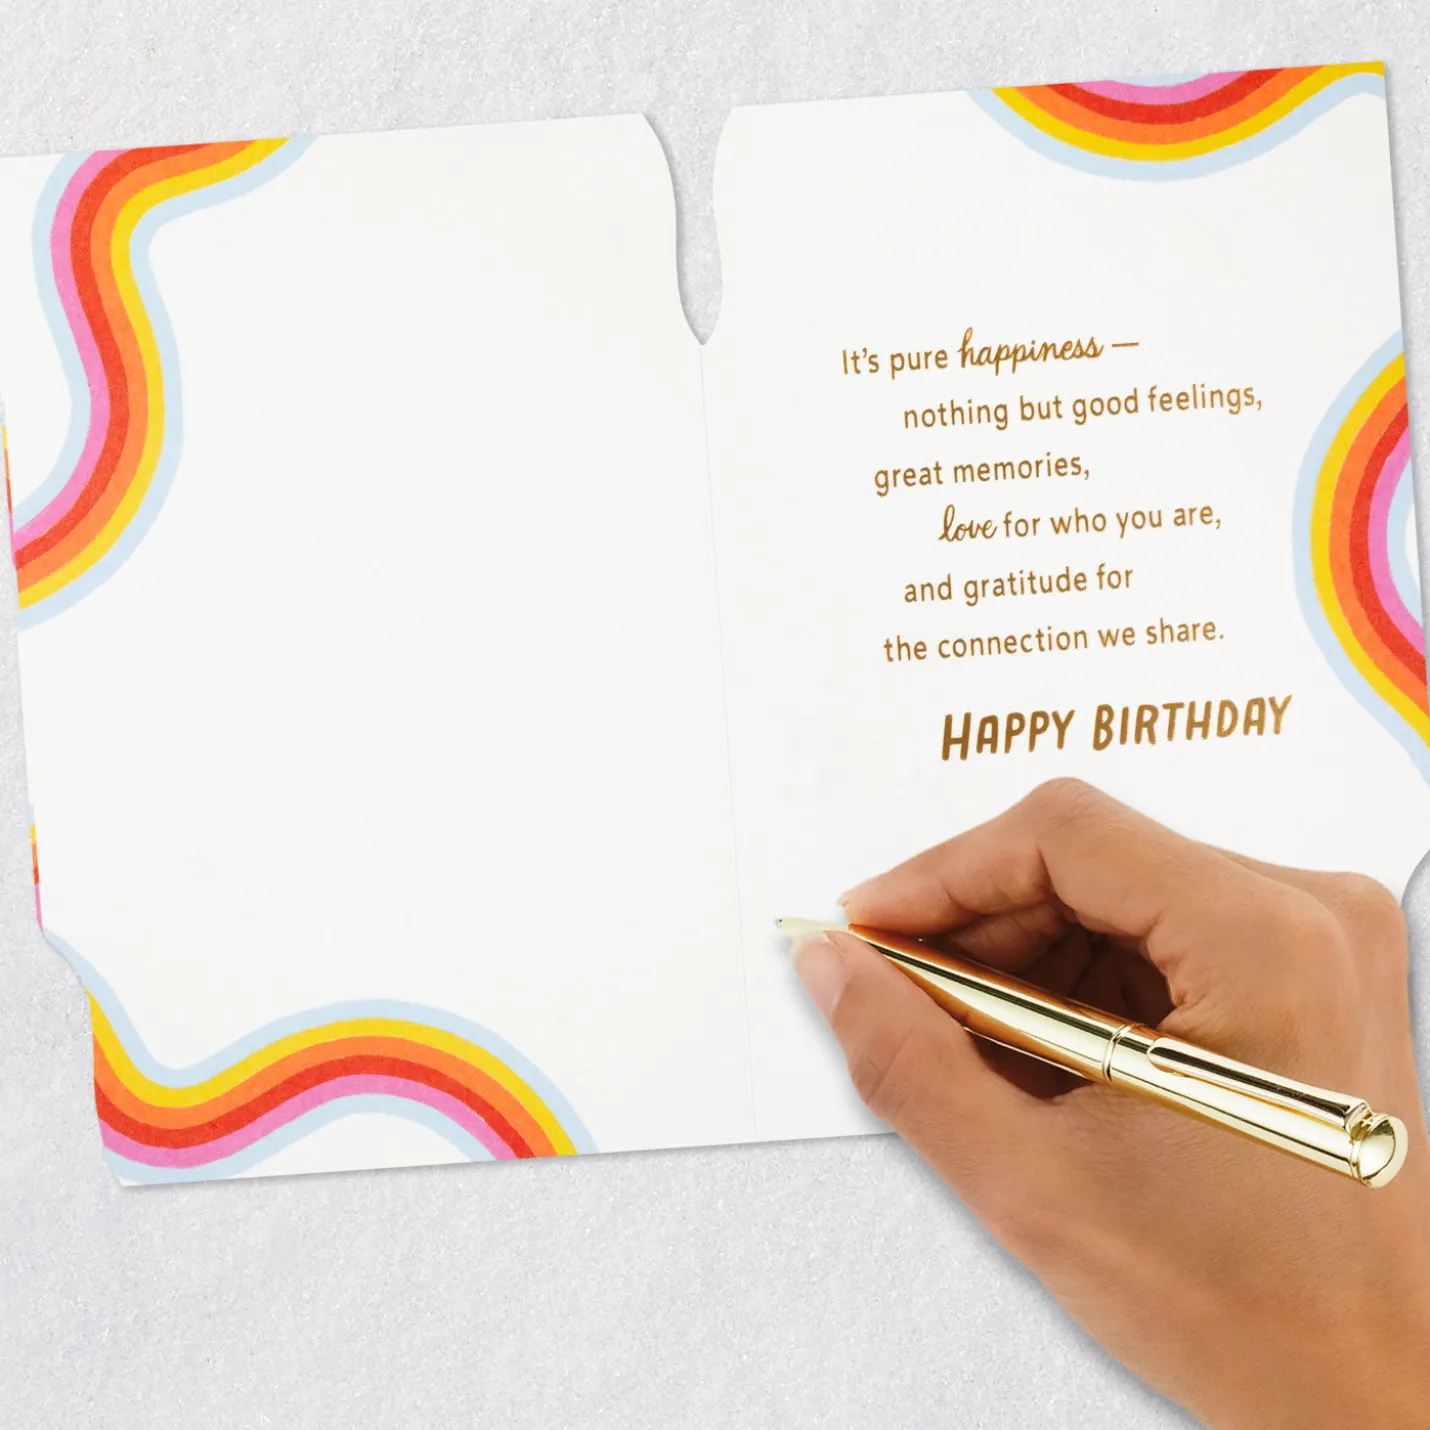 It's pure happiness —
nothing but good feelings,
great memories,
love for who you are,
and gratitude for
the connection we share.
HAPPY BIRTHDAY